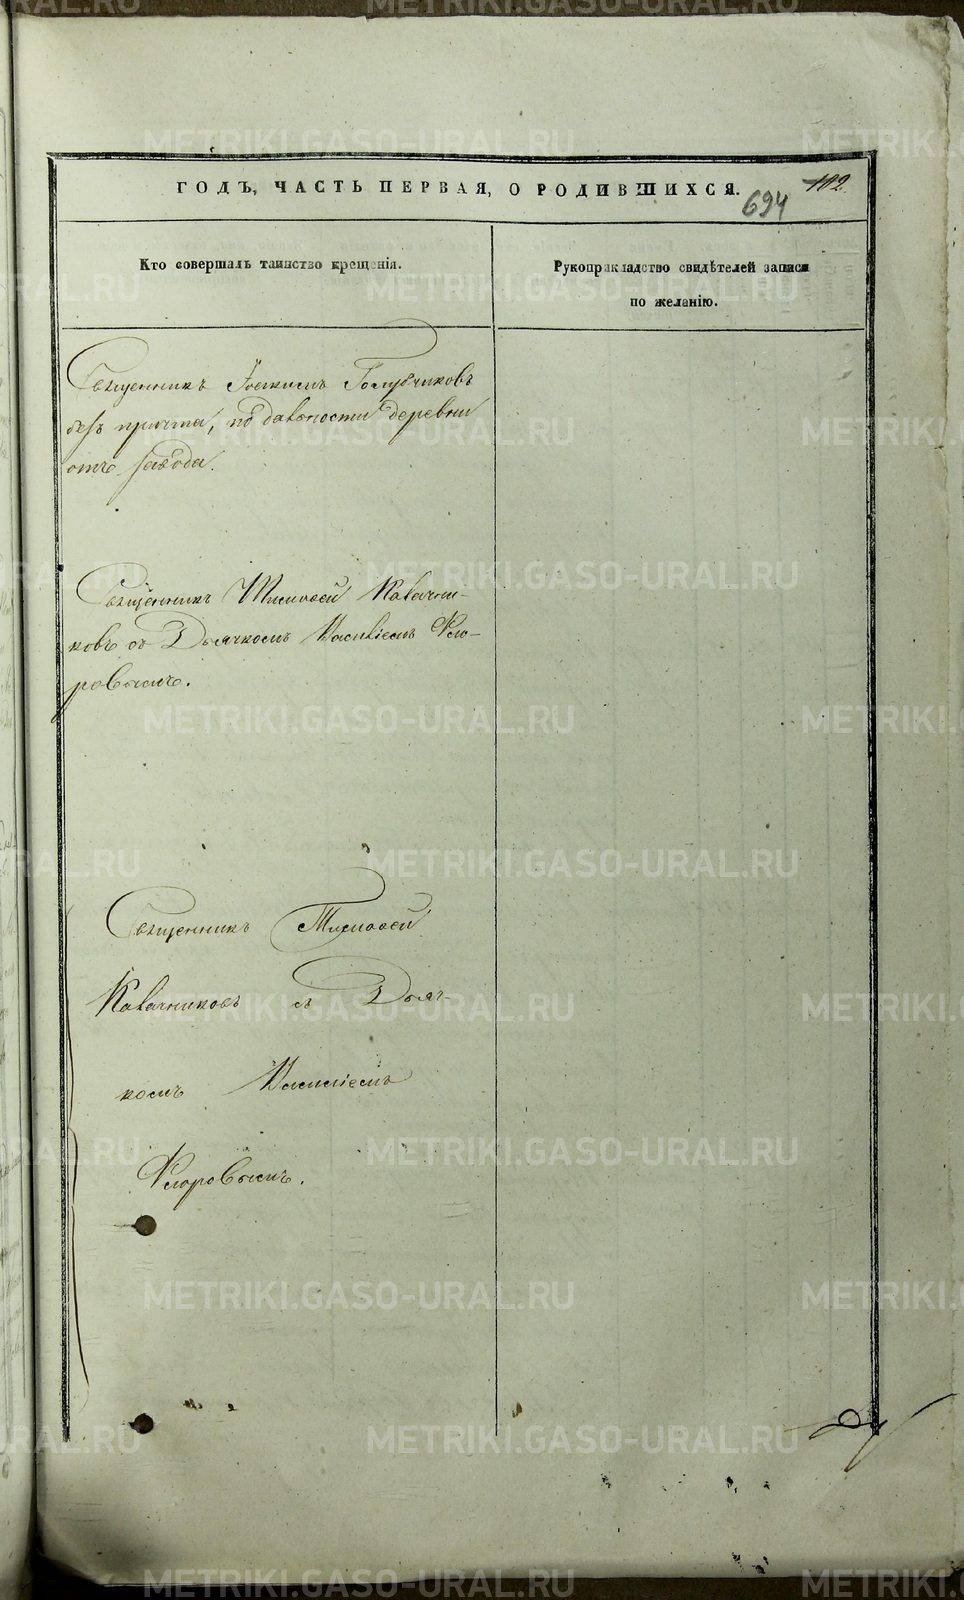 ГОДЪ, ЧАСТЬ ПЕРВАЯ, О РОДИВШИХСЯ.
102.
694
Кто совершалъ таинство крещенія.
Рукоприкладство свидѣтелей записи
по желанію.
Священникъ Іоакимъ Голубчиковъ
безъ причта, по дальности деревни
отъ завода.
Священникъ Тимоѳей Кавачни-
ковъ съ Дьячкомъ Василіемъ Фло-
ровымъ.
Священникъ Тимоѳей
Кавачниковъ съ Дьяч-
комъ Василіемъ
Флоровымъ.
METRIKI.GASO-URAL.RU